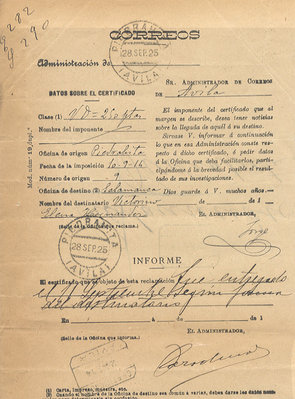 282
290
CORREOS
Administración de
PIEDRAHITA
28 SEP. 25
(AVILA)
DATOS SOBRE EL CERTIFICADO
SR. ADMINISTRADOR DE CORREOS
de Avila
Clase (1)
Nombre del imponente
Oficina de origen Piedrahita
Fecha de la imposición
Número de origen 9
Oficina de destino (2) Salamanca
Nombre del destinatario Victorino
(Sello de la oficina que reclama.)
El imponente del certificado que al
margen se describe, desea tener noticias
sobre la llegada de aquél á su destino.
Sírvase V. informar á continuación
lo que en esa Administración conste res-
pecto á dicho certificado, ó pedir datos
á la Oficina que deba facilitarlos, partici-
pándome á la brevedad posible el resultado
de sus investigaciones.
Dios guarde á V. muchos años.
de de 1
EL ADMINISTRADOR,
PIEDRAHITA
28 SEP. 25
(AVILA)
INFORME
El certificado objeto de esta reclamación fue entregado
el Septiembre según firma
del destinatario
En de de 1
EL ADMINISTRADOR,
(Sello de la Oficina que informa.)
(1) Carta, impreso, muestra, etc.
(2) Cuando el nombre de la Oficina de destino sea común á varias, deben darse los datos